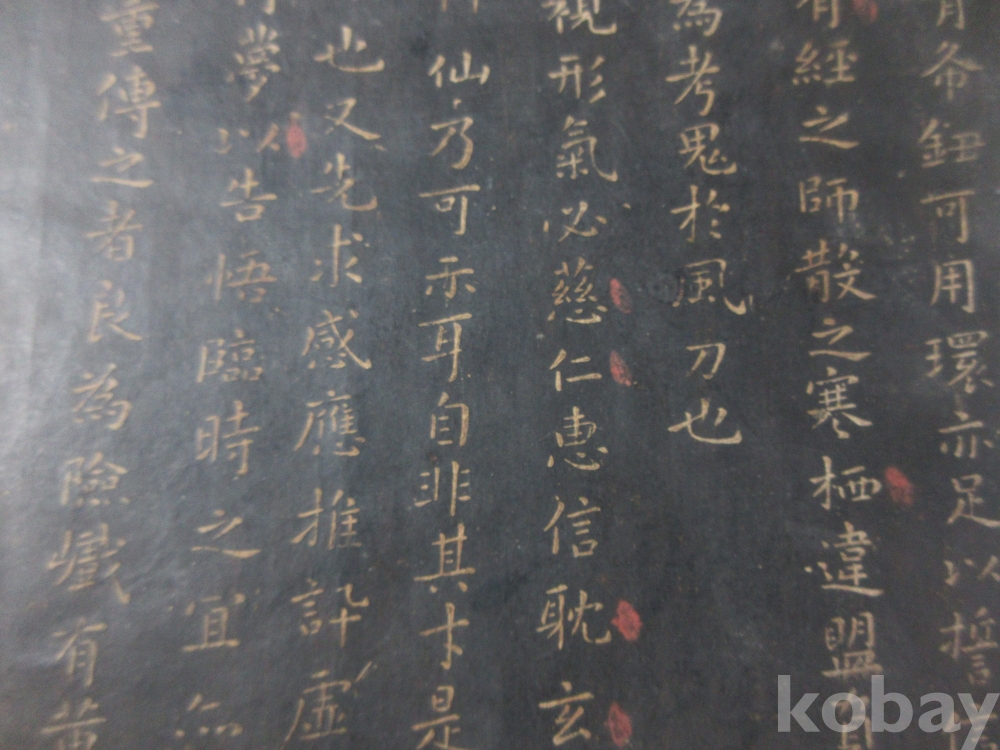 布鈕可用環亦足以誓
有經之師散之寒栖違盟
為考鬼於風刀也
視形氣必慈仁惠信耽玄
仙乃可示耳自非其才是
也又先求感應推訴虛
夢以告悟臨時之宜無
重傳之者良為險巇有黃
kobay